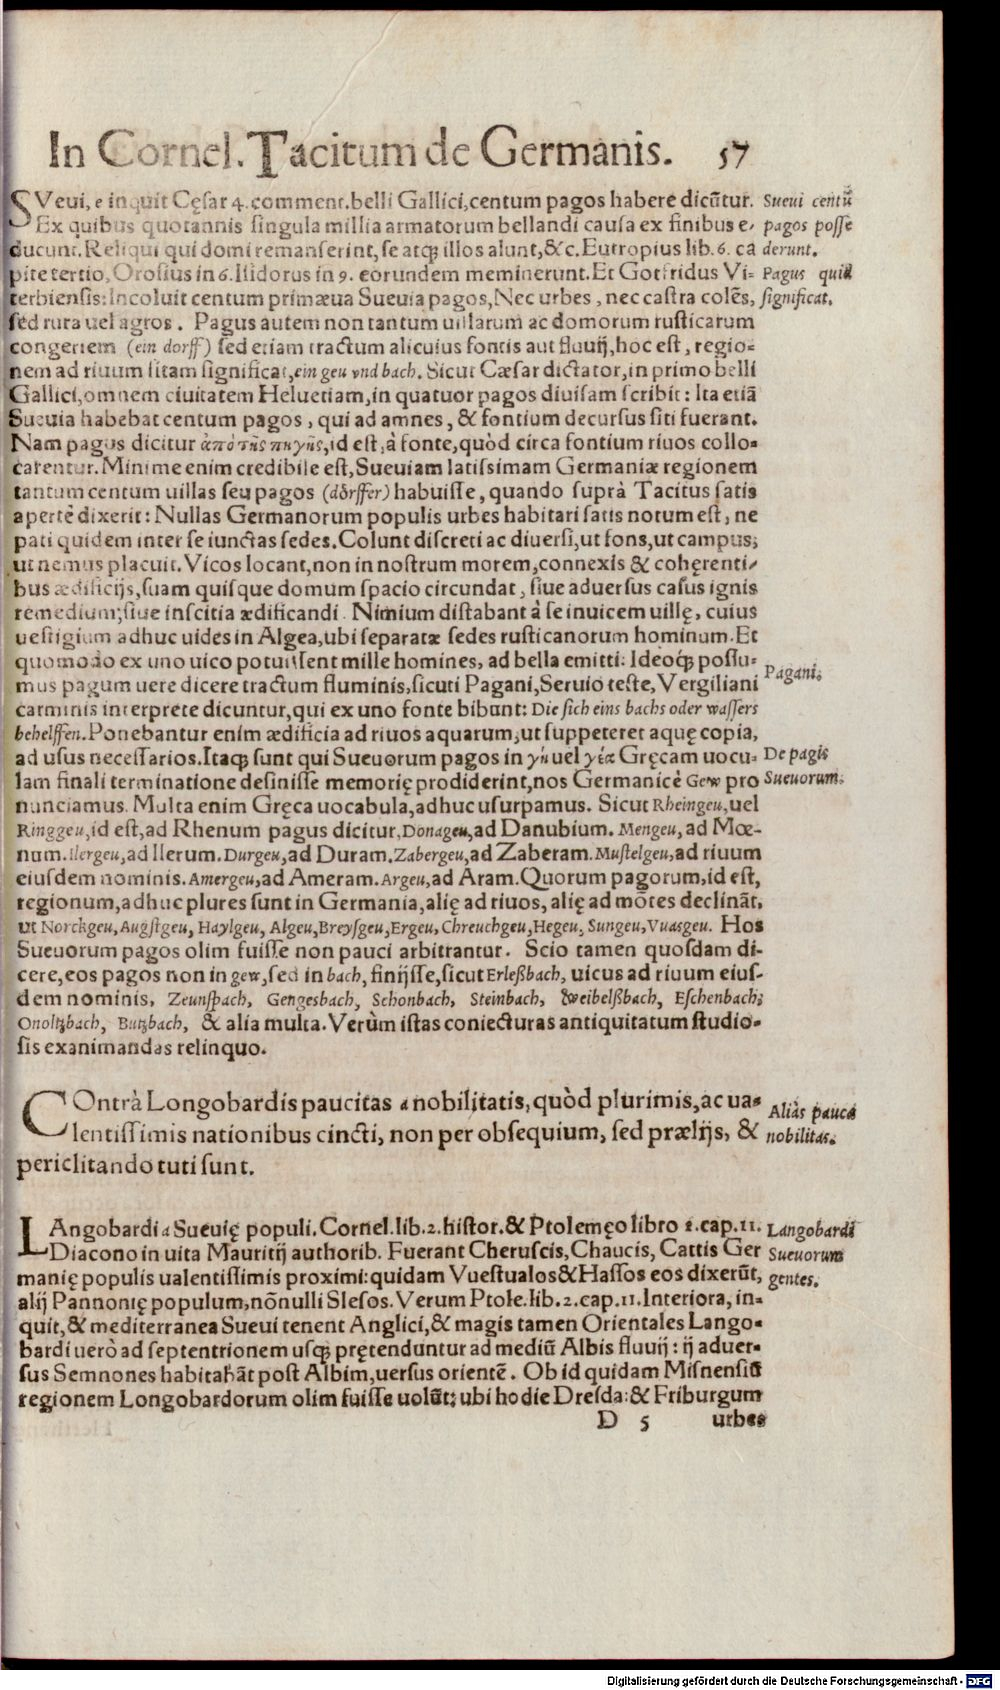 In Cornel. Tacitum de Germanis. 57
SVevi, e inquit Cęsar 4. comment. belli Gallici, centum pagos habere dicũtur.
Suevi centũ
Ex quibus quotannis singula millia armatorum bellandi causa ex finibus e-
pagos posse
ducunt. Reliqui qui domi remanserint, se atq; illos alunt, &c. Eutropius lib. 6. ca
derunt.
pite tertio, Orosius in 6. Isidorus in 9. eorundem meminerunt. Et Gotfridus Vi-
Pagus quid
terbiensis: Incoluit centum primæua Sueuia pagos, Nec urbes, nec castra colẽs,
significat.
sed rura uel agros. Pagus autem non tantum uillarum ac domorum rusticarum
congeriem (ein dorff) sed etiam tractum alicuius fontis aut fluuij, hoc est, regio-
nem ad riuum sitam significat, ein geu vnd bach. Sicut Cæsar dictator, in primo belli
Gallici, omnem ciuitatem Heluetiam, in quatuor pagos diuisam scribit: Ita etiã
Sueuia habebat centum pagos, qui ad amnes, & fontium decursus siti fuerant.
Nam pagus dicitur ἀπὸ τῆς πηγῆς, id est, à fonte, quòd circa fontium riuos collo-
carentur. Minime enim credibile est, Sueuiam latissimam Germaniæ regionem
tantum centum uillas seu pagos (dörffer) habuisse, quando suprà Tacitus satis
apertè dixerit: Nullas Germanorum populis urbes habitari satis notum est, ne
pati quidem inter se iunctas sedes. Colunt discreti ac diuersi, ut fons, ut campus,
ut nemus placuit. Vicos locant, non in nostrum morem, connexis & cohęrenti-
bus ædificijs, suam quisque domum spacio circundat, siue aduersus casus ignis
remedium, siue inscitia ædificandi. Nimium distabant à se inuicem uillę, cuius
uestigium adhuc uides in Algea, ubi separatæ sedes rusticanorum hominum. Et
quomodo ex uno uico potuissent mille homines, ad bella emitti: Ideoq; possu-
mus pagum uere dicere tractum fluminis, sicuti Pagani, Seruio teste, Vergiliani
Pagani.
carminis interprete dicuntur, qui ex uno fonte bibunt: Die sich eins bachs oder wassers
behelffen. Ponebantur enim ædificia ad riuos aquarum, ut suppeteret aquę copia,
ad usus necessarios. Itaq; sunt qui Sueuorum pagos in γῆ uel γέα Gręcam uocu-
De pagis
lam finali terminatione desinisse memorię prodiderint, nos Germanicè Gew pro
Sueuorum.
nunciamus. Multa enim Gręca uocabula, adhuc usurpamus. Sicut Rheingeu, uel
Ringgeu, id est, ad Rhenum pagus dicitur. Donageu, ad Danubium. Mengeu, ad Mœ-
num. Ilergeu, ad Ilerum. Durgeu, ad Duram. Zabergeu, ad Zaberam. Mustelgeu, ad riuum
eiusdem nominis. Amergeu, ad Ameram. Argeu, ad Aram. Quorum pagorum, id est,
regionum, adhuc plures sunt in Germania, alię ad riuos, alię ad mõtes declinãt,
ut Norckgeu, Augstgeu, Haylgeu, Algeu, Breysgeu, Ergeu, Chreuchgeu, Hegeu, Sungeu, Vuasgeu. Hos
Sueuorum pagos olim fuisse non pauci arbitrantur. Scio tamen quosdam di-
cere, eos pagos non in gew, sed in bach, finijsse, sicut Erleßbach, uicus ad riuum eius-
dem nominis, Zeunspach, Gengesbach, Schonbach, Steinbach, Weibelßbach, Eschenbach,
Onoltzbach, Butzbach, & alia multa. Verùm istas coniecturas antiquitatum studio-
sis exanimandas relinquo.
COntrà Longobardis paucitas a nobilitatis, quòd plurimis, ac ua-
Aliàs pauca
lentissimis nationibus cincti, non per obsequium, sed prælijs, &
nobilitas.
periclitando tuti sunt.
LAngobardi a Sueuię populi. Cornel. lib. 2. histor. & Ptolemęo libro 2. cap. 11.
Langobardi
Diacono in uita Mauritij authorib. Fuerant Cheruscis, Chaucis, Cattis Ger
Sueuorum
manię populis ualentissimis proximi: quidam Vuestualos & Hassos eos dixerũt,
gentes.
alij Pannonię populum, nõnulli Slesos. Verum Ptole. lib. 2. cap. 11. Interiora, in-
quit, & mediterranea Sueui tenent Anglici, & magis tamen Orientales Lango-
bardi uerò ad septentrionem usq; prętenduntur ad mediũ Albis fluuij: ij aduer-
sus Semnones habitabãt post Albim, uersus orientẽ. Ob id quidam Misnensiũ
regionem Longobardorum olim fuisse uolũt, ubi hodie Dresda & Friburgum
D 5 urbes
Digitalisierung gefördert durch die Deutsche Forschungsgemeinschaft - DFG